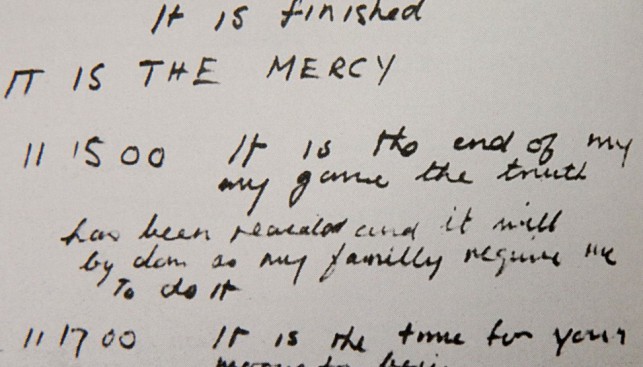 It is finished
IT IS THE MERCY
11 15 00 It is the end of my
my game the truth
has been revealed and it will
by don as my familly require me
To do it
11 17 00 It is the time for your
move to begin